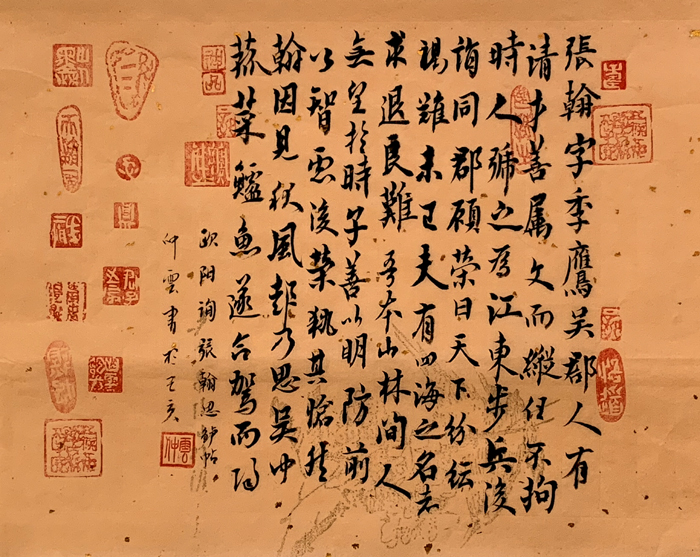 張翰字季鷹吳郡人有
清才善属文而縱任不拘
時人號之為江東步兵後
詢同郡顧榮曰天下紛紜
禍難未已夫有四海之名者
求退良難吾本山林間人
無望於時子善以明防前
以智慮後榮執其愴然
翰因見秋風起乃思吳中
菰菜鱸魚遂命駕而歸
欧阳询張翰思鲈帖
仲雲書於己亥
仲雲